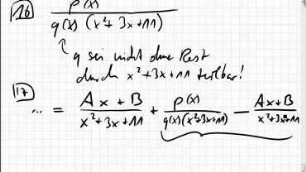 16 p(x) / q(x) (x²+3x+11)
↑ q sei nicht ohne Rest
durch x²+3x+11 teilbar!
17 ... = (Ax+B)/(x²+3x+11) + p(x)/(q(x)(x²+3x+11)) - (Ax+B)/(x²+3x+11)